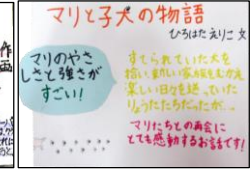 作
画
マリと子犬の物語
ひろはた えりこ 文
マリのやさ
しさと強さが
すごい!
すてられていた犬を
拾い、新しい家族をむかえ
楽しい日々を送っていた
りょうたたちだったが…
マリたちとの再会に
とても感動するお話です!